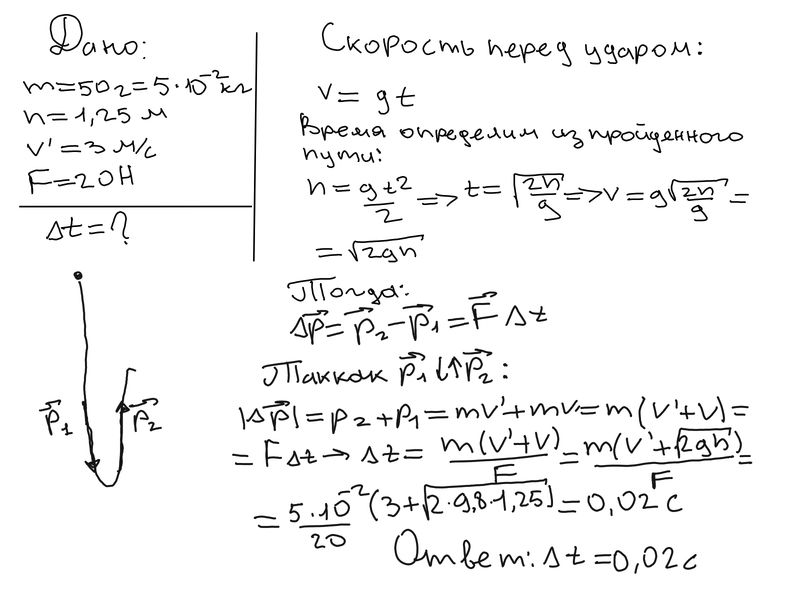 Дано:
m=50г=5·10⁻²кг
h=1,25 м
v'=3 м/с
F=20Н
Δt=?
p⃗₁ p⃗₂
Скорость перед ударом:
v= gt
Время определим из пройденного
пути:
h=gt²/2 => t=√(2h/g) => v=g√(2h/g)=
=√(2gh)
Тогда:
Δp⃗=p⃗₂-p⃗₁=F⃗ Δt
Так как p⃗₁↓↑p⃗₂:
|Δp⃗|=p₂+p₁=mv'+mv=m(v'+v)=
=FΔt→Δt= m(v'+v)/F=m(v'+√(2gh))/F=
=5·10⁻²/20(3+√(2·9,8·1,25))=0,02 с
Ответ: Δt=0,02с